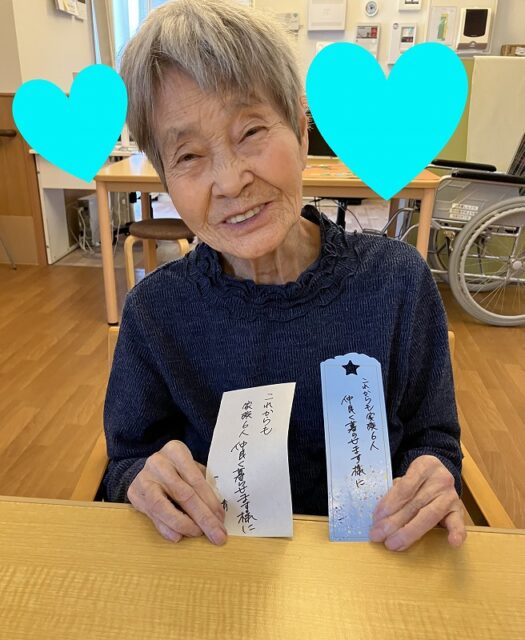 これからも
家族6人
仲良く暮らせます様に
これからも家族6人
仲良く暮らせます様に